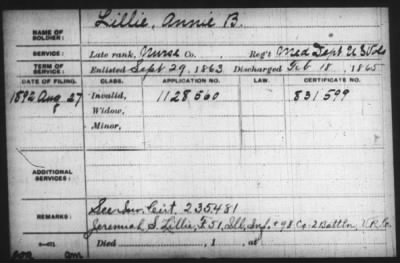 Lillie, Annie B.
NAME OF SOLDIER:
SERVICE: Late rank, Nurse Co. , Reg't Med Dept U S Vols
TERM OF SERVICE: Enlisted Sept 29, 1863 Discharged Feb 18, 1865
DATE OF FILING. CLASS. APPLICATION NO. LAW. CERTIFICATE NO.
1892 Aug 27 Invalid, 1128560 831599
Widow,
Minor,
ADDITIONAL SERVICES:
REMARKS: See Inv. Cert. 235481
Jeremiah S. Lillie, F 51, Ill, Inf. + 98 Co. 2 Battln. V.R.C.
Died , 1 , at